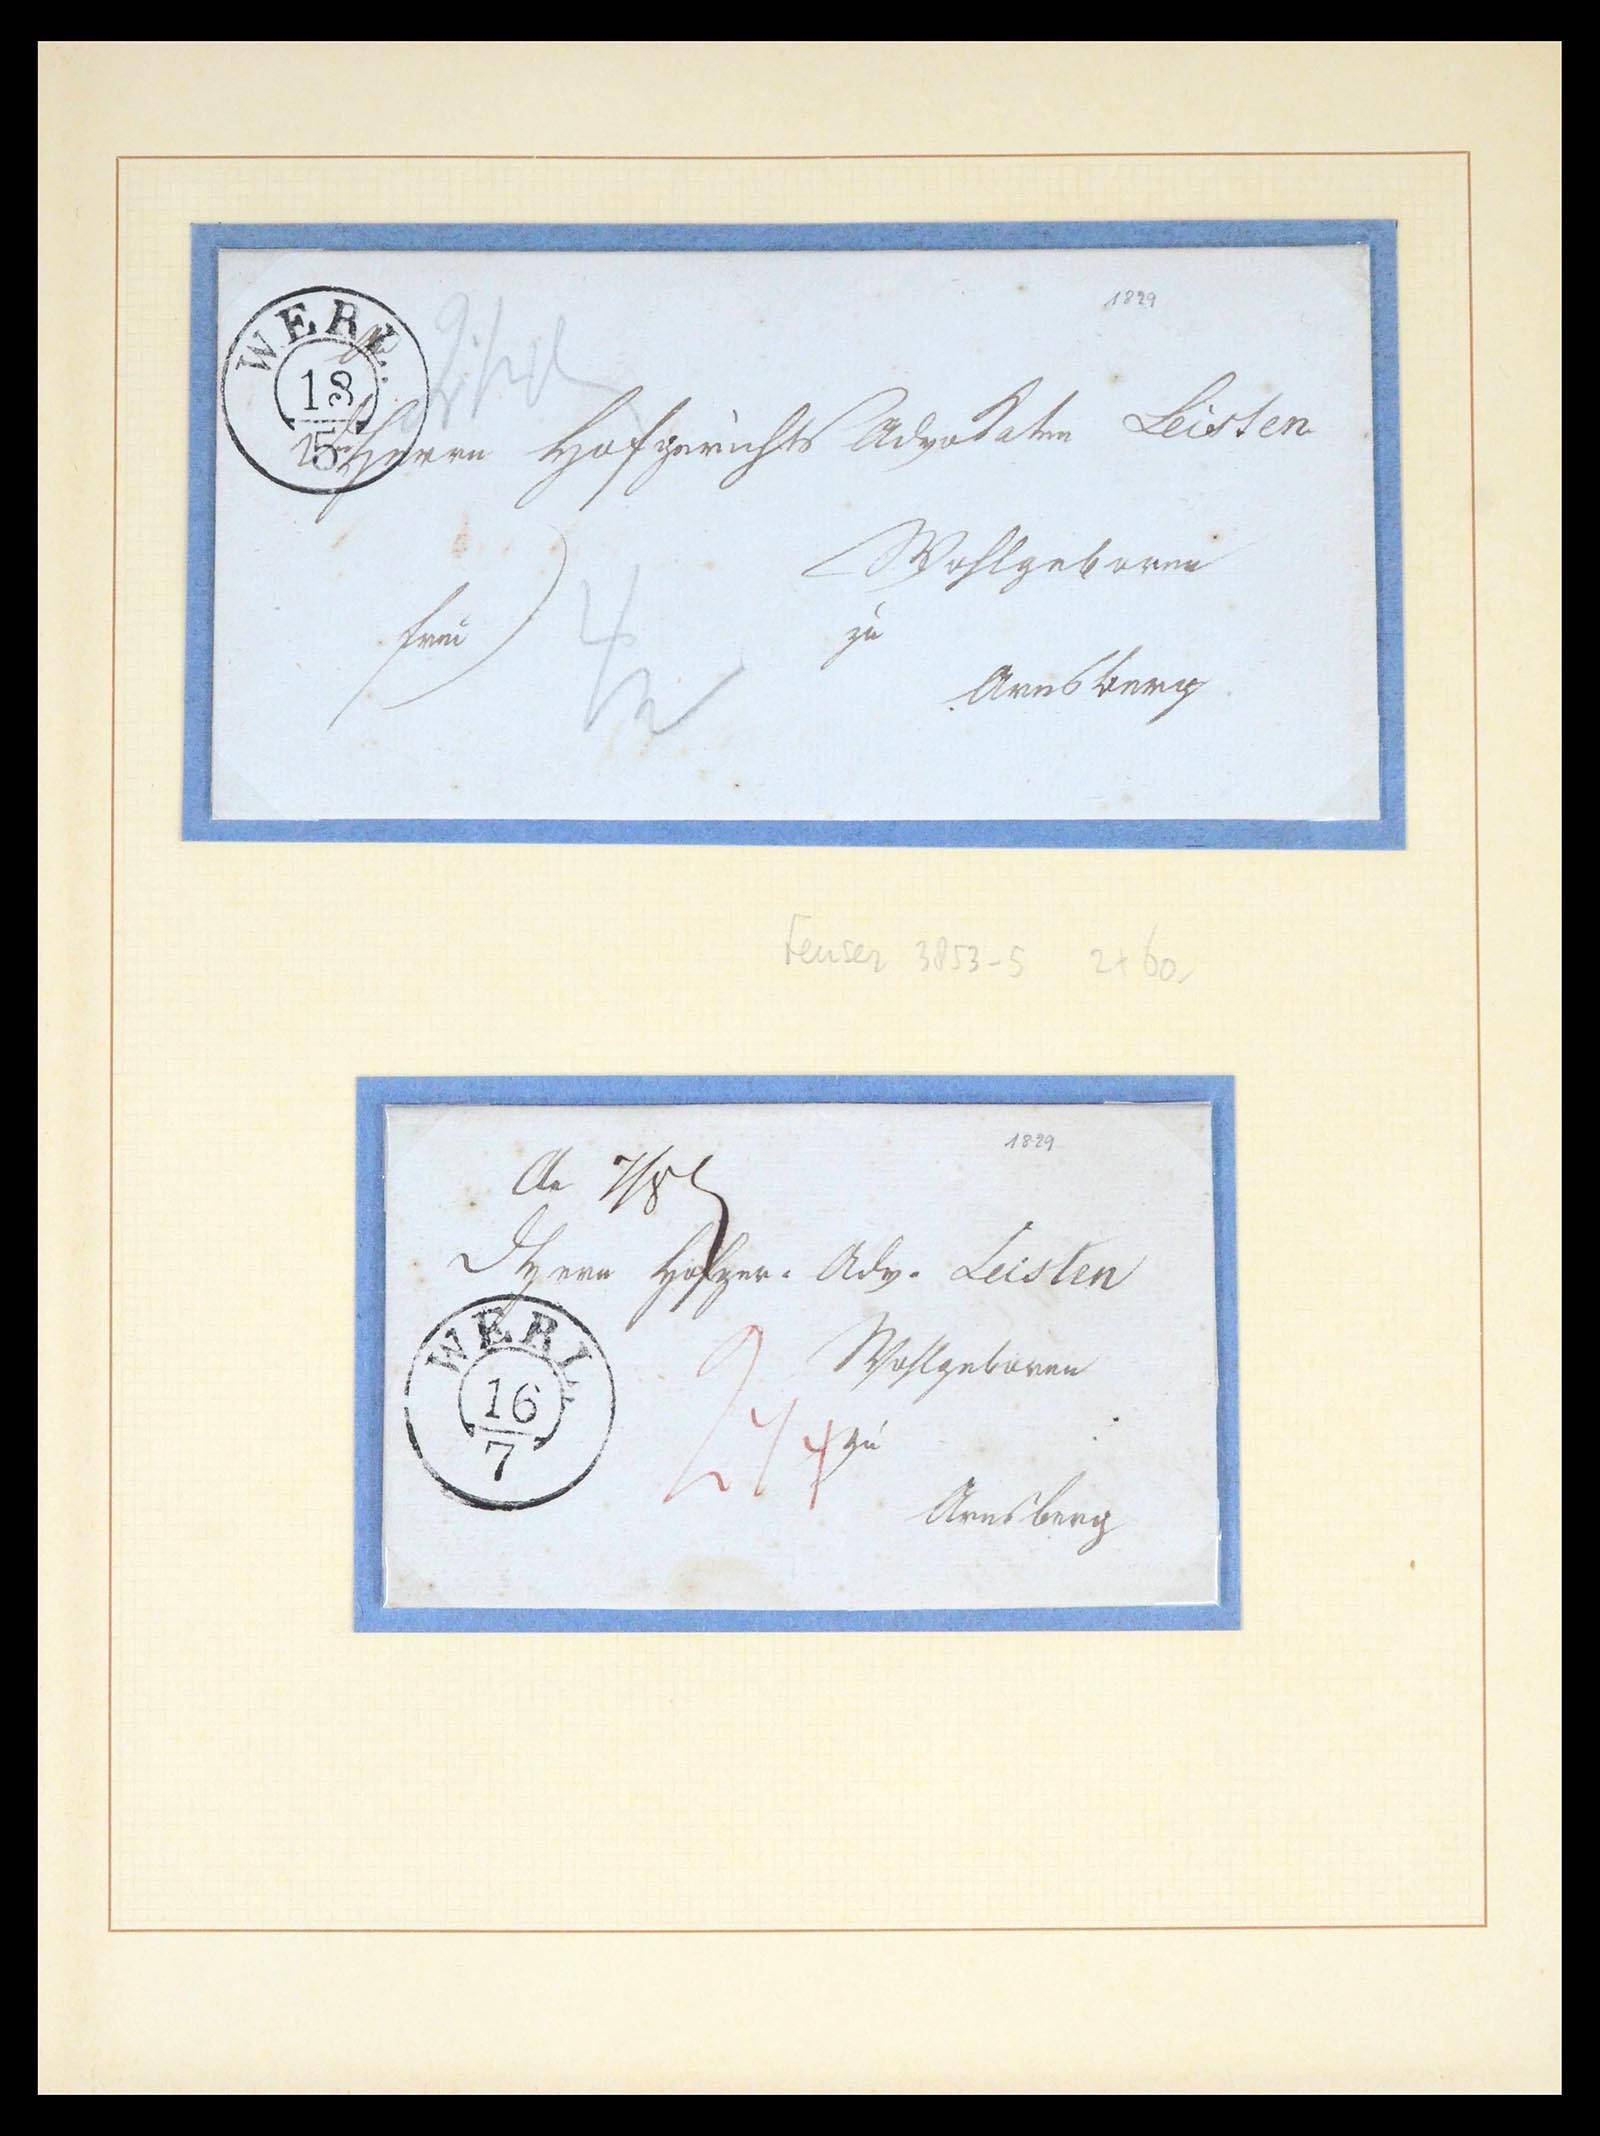 1829
WERL.
18
5
Herrn Hofgerichts Advokaten Leisten
Wohlgeboren
frei
zu
Arnsberg
Feuser 3853-5 2x60,-
1829
An
Herrn Hofger. Adv. Leisten
WERL.
16
7
Wohlgeboren
zu
Arnsberg